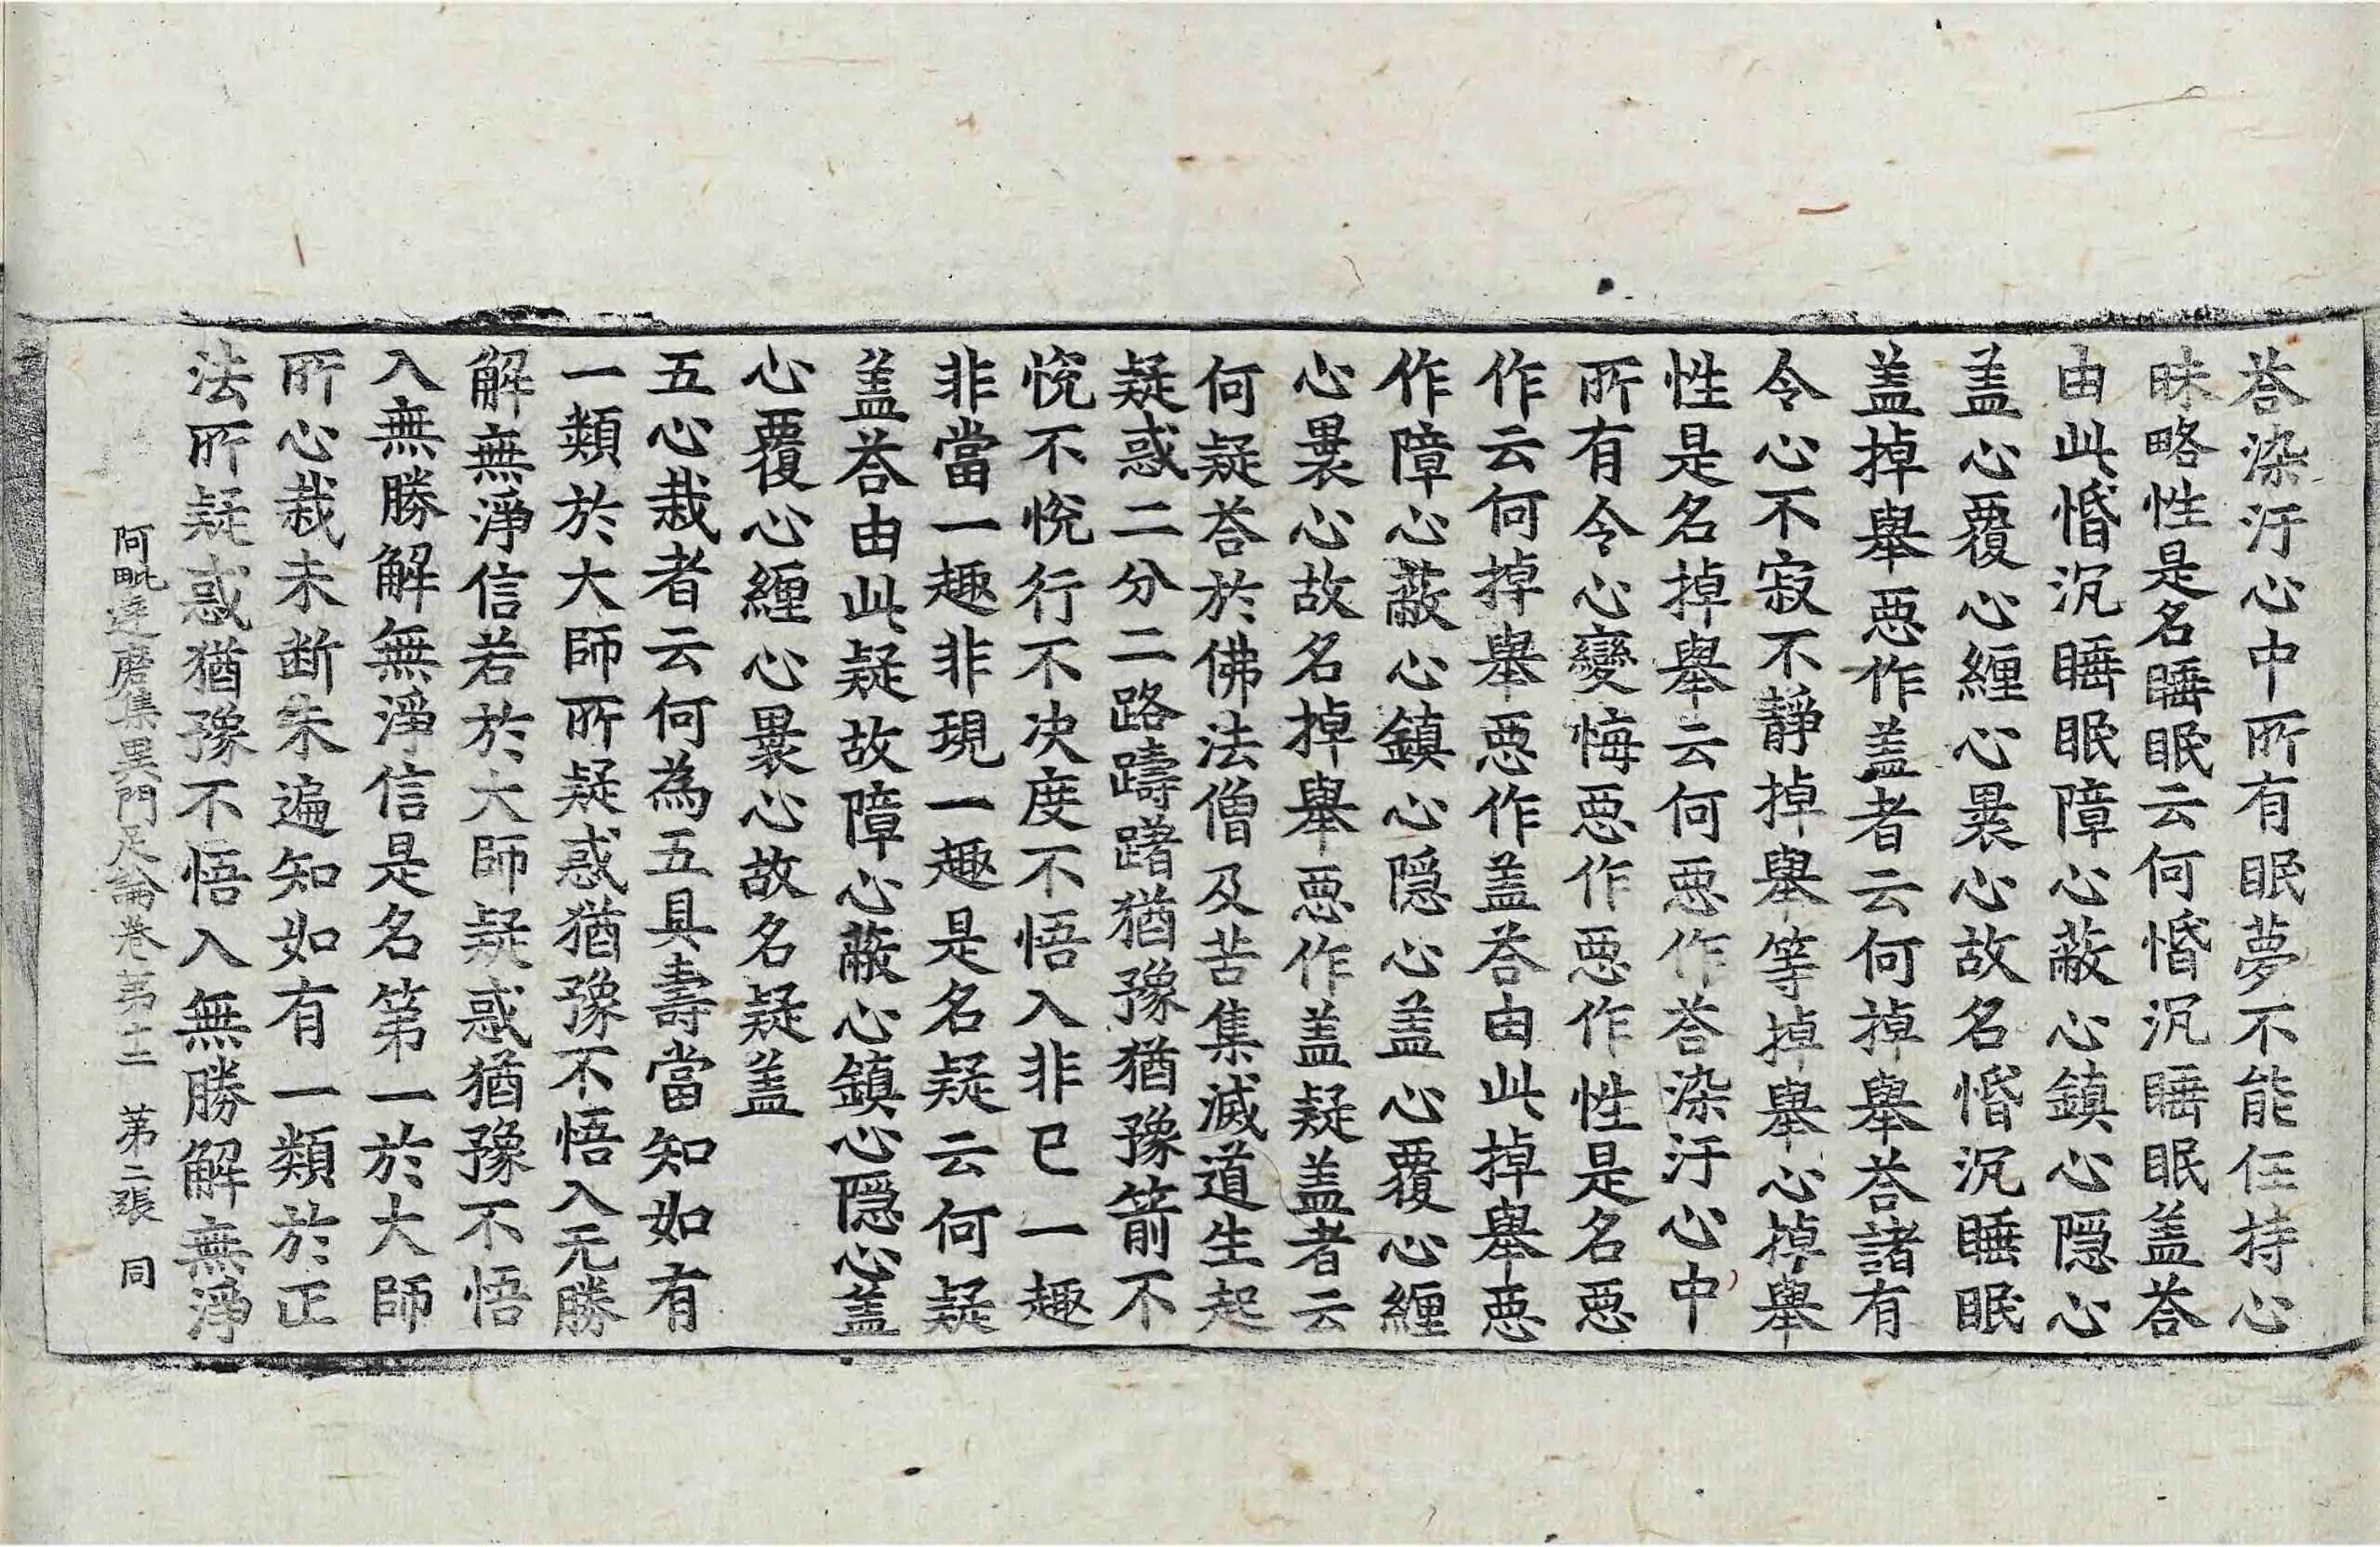 荅染汙心中所有眠夢不能任持心
昧略性是名睡眠云何惛沉睡眠盖荅
由此惛沉睡眠障心蔽心鎮心隱心
盖心覆心纏心褁心故名惛沉睡眠
盖掉舉惡作盖者云何掉舉荅諸有
令心不寂不靜掉舉等掉舉心掉舉
性是名掉舉云何惡作荅染汙心中
所有令心變悔惡作惡作性是名惡
作云何掉舉惡作盖荅由此掉舉惡
作障心蔽心鎮心隱心盖心覆心纏
心褁心故名掉舉惡作盖疑盖者云
何疑荅於佛法僧及苦集滅道生起
疑惑二分二路躊躇猶豫猶豫箭不
悅不悅行不决度不悟入非已一趣
非當一趣非現一趣是名疑云何疑
盖荅由此疑故障心蔽心鎮心隱心盖
心覆心纏心褁心故名疑盖
五心栽者云何為五具壽當知如有
一類於大師所疑惑猶豫不悟入无勝
解無淨信若於大師疑惑猶豫不悟
入無勝解無淨信是名第一於大師
所心栽未断未遍知如有一類於正
法所疑惑猶豫不悟入無勝解無淨
阿毗達磨集異門足論卷苐十二 苐二張 同